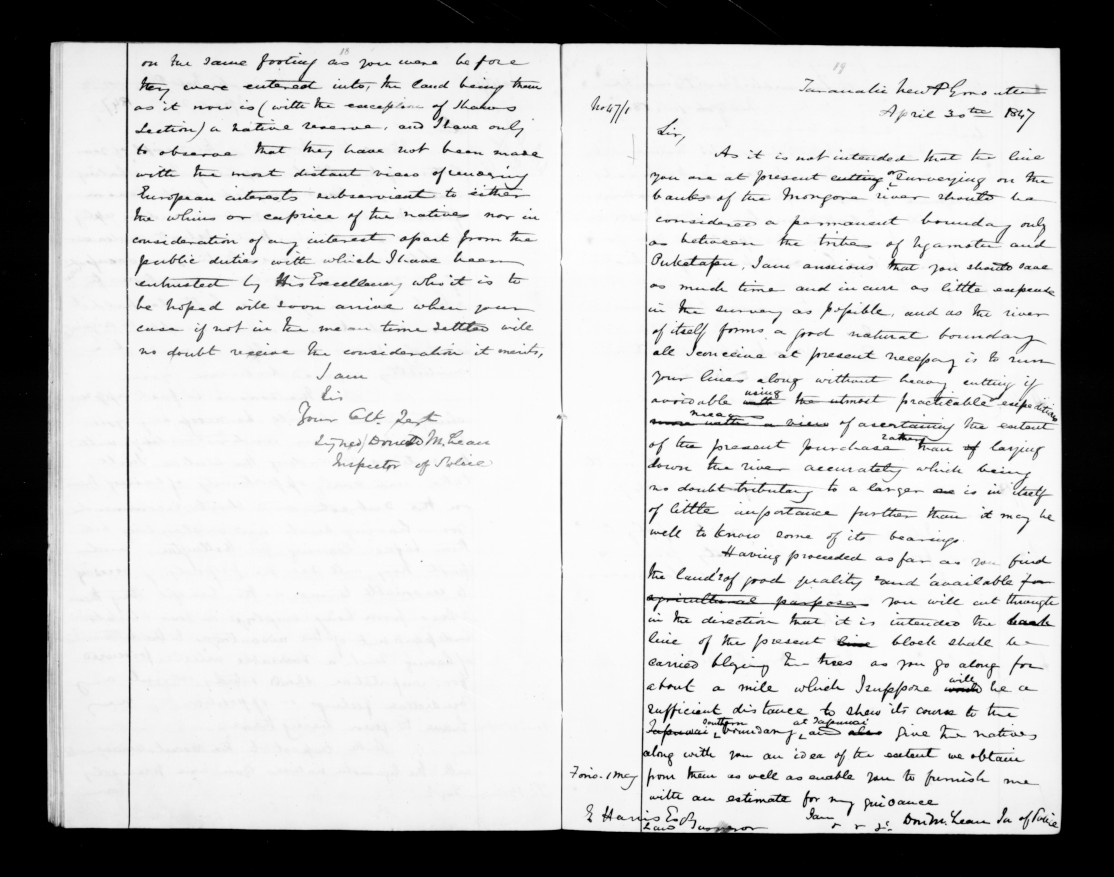 18
on the same footing as you were before
they were entered into, the land being then
as it now is (with the exception of Shaws
Section) a native reserve, and I have only
to observe that they have not been made
with the most distant view of rendering
European interests subservient to either
the whims or caprice of the natives nor in
consideration of any interest apart from the
public duties with which I have been
entrusted by His Excellency who it is to
be hoped will soon arrive when your
case if not in the mean time settled will
no doubt receive the consideration it merits,
I am
Sir
Your Obt. Servt
Signed/ Donald McLean
Inspector of Police
19
Taranaki New P
No 47/1
April 30th 1847
Sir,
As it is not intended that the line
you are at present cutting or surveying on the
banks of the Mongora river should be
considered a permanent boundary only
as between the tribes of Ngamotu and
Puketapu, I am anxious that you should save
as much time and incur as little expense
in the survey as possible, and as the river
of itself forms a good natural boundary
all I conceive at present necessary is to run
your lines along without heavy cutting if
avoidable using with the utmost practicable expedition
means more with a view of ascertaining the extent
of the present purchase rather than of laying
down the river accurately which being
no doubt tributary to a larger one is in itself
of little importance further than it may be
well to know some of its bearings.
Having proceeded as far as you find
the land of good quality and available for
agricultural purposes you will cut through
in the direction that it is intended the back
line of the present line block shall be
carried blazing the trees as you go along for
about a mile which I suppose will would be a
sufficient distance to shew its course to the
Tapuwai southern boundary at Tapuwai and also give the natives
along with you an idea of the extent we obtain
from them as well as enable you to furnish me
with an estimate for my guidance
I am
&c &c &c Don McLean In of Police
1 May
E Harris Esqr
Land Surveyor